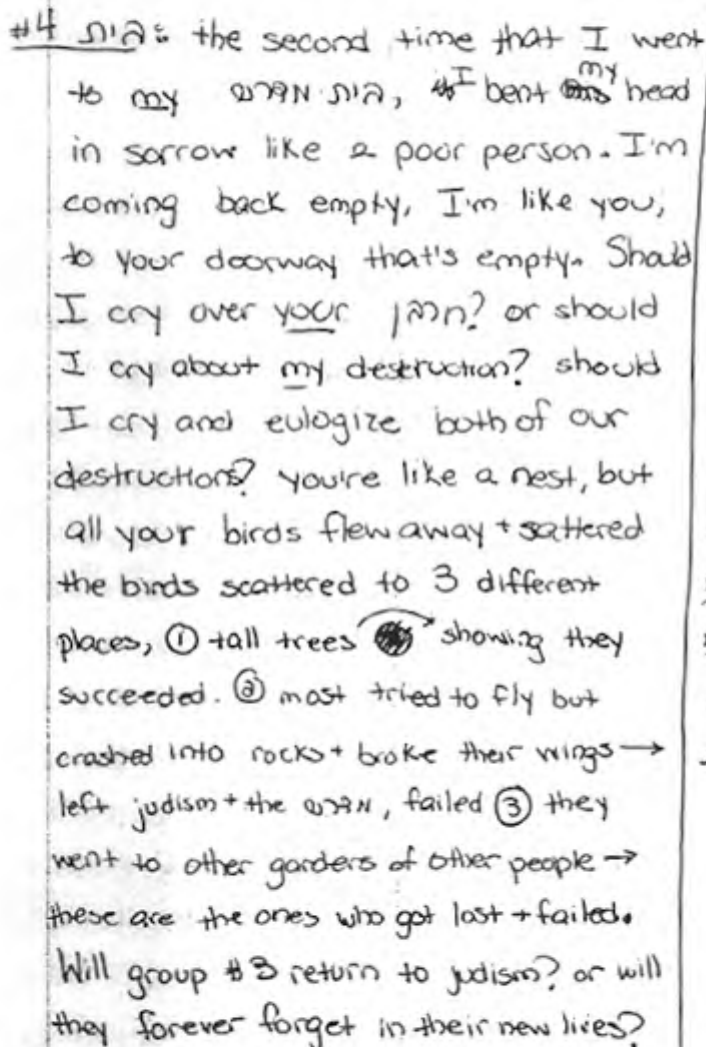 #4 בית: the second time that I went
to my בית מדרש, I bent my head
in sorrow like a poor person. I'm
coming back empty, I'm like you,
to your doorway that's empty. Should
I cry over your חרבן? or should
I cry about my destruction? should
I cry and eulogize both of our
destructions? you're like a nest, but
all your birds flew away + sattered
the birds scattered to 3 different
places, ① tall trees → showing they
succeeded. ② most tried to fly but
crashed into rocks + broke their wings →
left judism + the מדרש, failed ③ they
went to other gardens of other people →
these are the ones who got lost + failed.
Will group #3 return to judism? or will
they forever forget in their new lives?